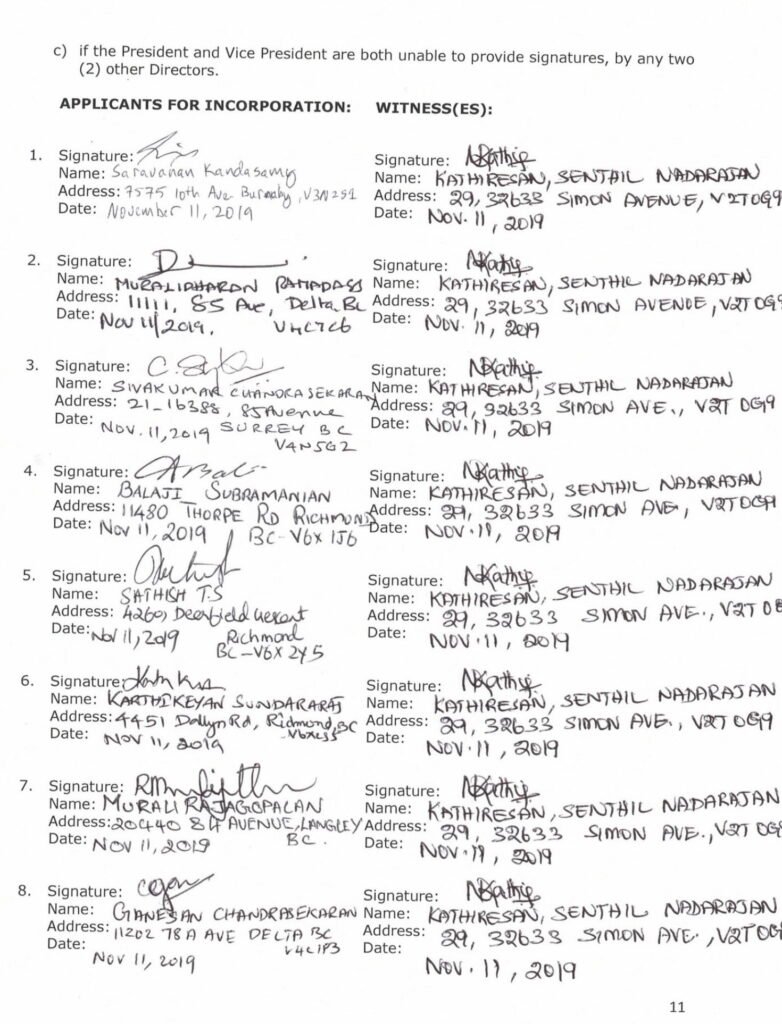 c) if the President and Vice President are both unable to provide signatures, by any two
(2) other Directors.
APPLICANTS FOR INCORPORATION: WITNESS(ES):
1. Signature: Signature: NKathir
Name: Saravanan Kandasamy Name: KATHIRESAN, SENTHIL NADARAJAN
Address: 7575 10th Ave. Burnaby, V3N2S1 Address: 29, 32633 SIMON AVENUE, V2T0G9
Date: November 11, 2019 Date: NOV. 11, 2019
2. Signature: Signature: NKathir
Name: MURALIDHARAN RAMADASS Name: KATHIRESAN, SENTHIL NADARAJAN
Address: 11111, 85 Ave, Delta BC Address: 29, 32633 SIMON AVENUE, V2T0G9
Date: Nov 11, 2019. V4C7C6 Date: NOV. 11, 2019
3. Signature: Signature: NKathir
Name: SIVAKUMAR CHANDRASEKARAN Name: KATHIRESAN, SENTHIL NADARAJAN
Address: 21-16388, 85 Avenue Address: 29, 32633 SIMON AVE., V2T 0G9
Date: Nov. 11, 2019 SURREY BC Date: NOV. 11, 2019
V4N5G2
4. Signature: Signature: NKathir
Name: BALAJI SUBRAMANIAN Name: KATHIRESAN, SENTHIL NADARAJAN
Address: 11480 THORPE RD RICHMOND Address: 29, 32633 SIMON AVE, V2T0G9
Date: Nov 11, 2019 BC-V6X 1J6 Date: NOV. 11, 2019
5. Signature: Signature: NKathir
Name: SATHISH T.S Name: KATHIRESAN, SENTHIL NADARAJAN
Address: 4260, Deerfield Crescent Address: 29, 32633 SIMON AVE., V2T 0G
Date: Nov 11, 2019 Richmond Date: NOV. 11, 2019
BC-V6X 2Y5
6. Signature: Signature: NKathir
Name: KARTHIKEYAN SUNDARARAJ Name: KATHIRESAN, SENTHIL NADARAJAN
Address: 4451 Dallyn Rd, Richmond, BC Address: 29, 32633 SIMON AVE., V2T0G9
Date: Nov 11, 2019 Date: NOV. 11, 2019
7. Signature: Signature: NKathir
Name: MURALI RAJAGOPALAN Name: KATHIRESAN, SENTHIL NADARAJAN
Address: 20440 84 AVENUE, LANGLEY Address: 29, 32633 SIMON AVE., V2T 0G9
Date: Nov 11, 2019 BC. Date: NOV. 11, 2019
8. Signature: Signature: NKathir
Name: GANESAN CHANDRASEKARAN Name: KATHIRESAN, SENTHIL NADARAJAN
Address: 11202 78A AVE DELTA BC Address: 29, 32633 SIMON AVE., V2T0G
Date: Nov 11, 2019 V4C1P3 Date: NOV. 11, 2019
11